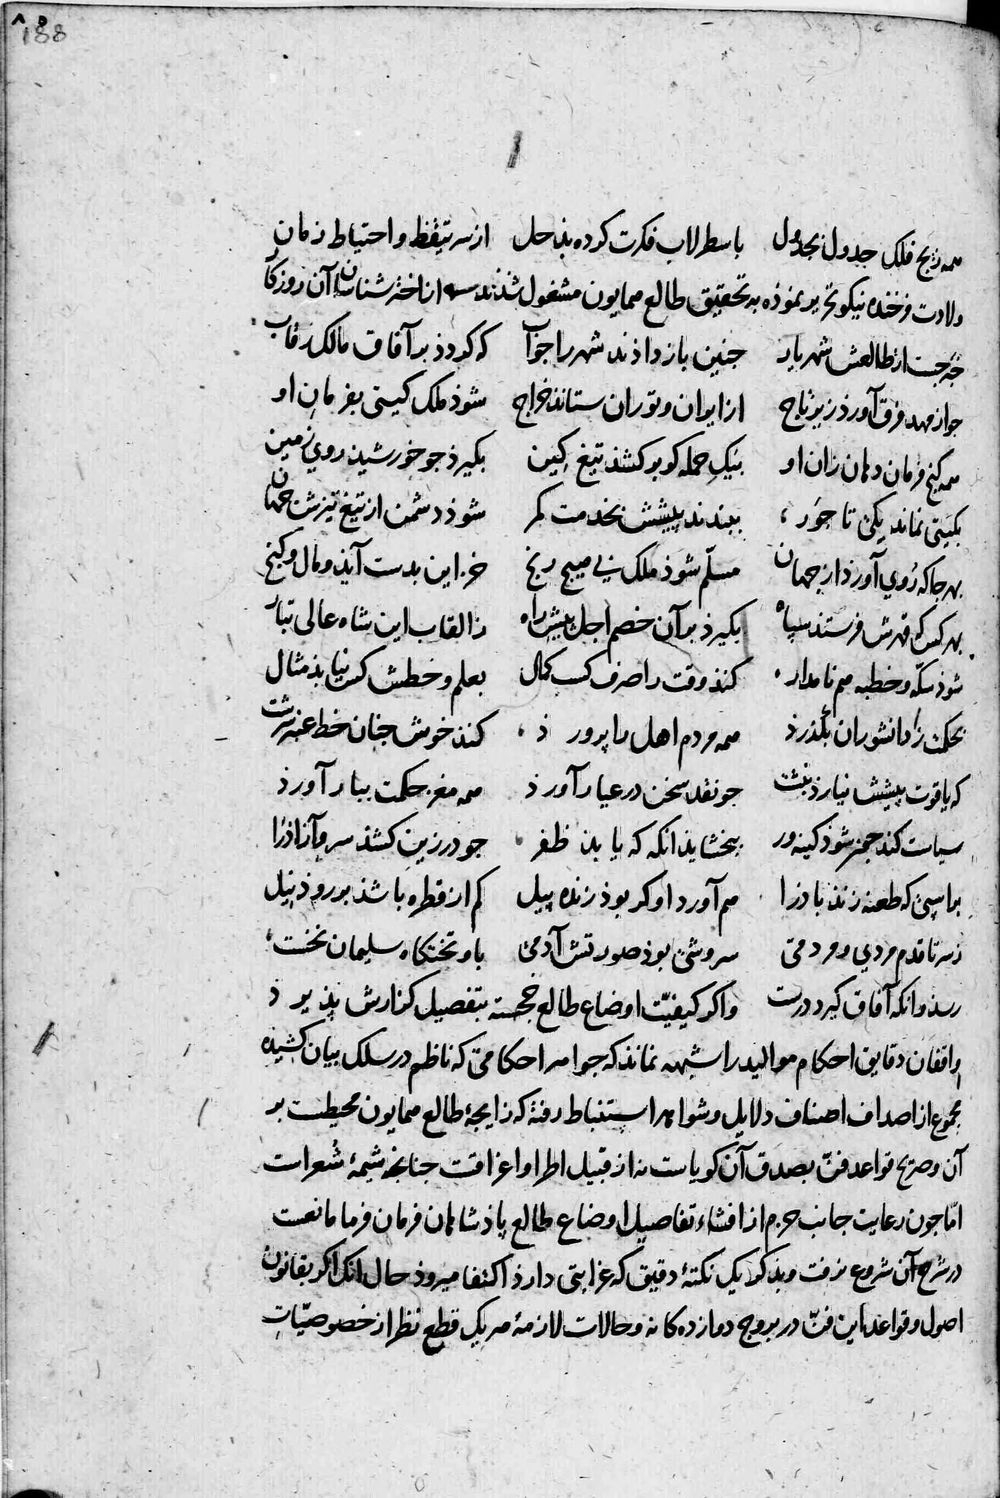 ۱۵۵
همه زیج فلک جدول بجدول باسطرلاب فکرت کرده بذ حل از سر تیقظ و احتیاط زمان
ولادت فرخنده نیکو تحریر نموذه به تحقیق طالع همایون مشغول شذند از اختر شناسان آن روزکار
جُست از طالعش شهریار جنین باز داذند شه را جواب که کردذ بر آفاق مالک رقاب
جو از مهد فرق آورذ زیر تاج از ایران و توران ستاند خراج شوذ ملک کیتی بفرمان او
همه کنج فرمان دهان زان او بیک حمله کو بر کشذ تیغ کین بکیرذ جو خورشید روی زمین
بکیتی نماند یکی تاجور ببندند پیشش بخدمت کمر شوذ دشمن از تیغ تیزش جهان
بهر جا که روی آورذ در جهان مسلّم شوذ ملک بی هیچ رنج خزاین بدست آیذ و مال و کنج
بهر کس که قهرش فرستد سپاه بکیرذ بر آن خصم اجل پیش راه ز القاب این شاه عالی تبار
شوذ سکّه و خطبه هم نامدار کنذ وقت را صرف کسب کمال بعلم و خطش کس نیابذ مثال
بحکمت ز دانشوران بگذرذ همه مردم اهل را پرورذ کنذ خوش جنان خط عنبر سرشت
که یاقوت پیشش نیارذ نبشت جو نقد سخن در عیار آورذ همه مغز حکمت ببار آورذ
سیاست کند جون شوذ کینه ور ببخشایذ انکه که یابذ ظفر جو در زین کشذ سرو آزاذ را
بر اسپی که طعنه زنذ باذ را هم آورد او کر بوذ زنده پیل کم از قطره باشذ بر روذ نیل
ز سر تا قدم مردی و مردمی سروشی بوذ صورتش آدمی باو تختکاه سلیمان نخست
رسذ وانکه آفاق کیرد درست و اکر کیفیّت اوضاع طالع خجسته بتفصیل کزارش پذیرذ
واقفان دقایق احکام موالید را شبهه نماند که جواهر احکامی که ناظم در سلک بیان کشیده
مجموع از اصداف اصناف دلایل و شواهد استنباط رفته که زایجهٔ طالع همایون محیطست بر
آن و صریح قواعد فنّ بصدق آن کویاست نه از قبیل اطرا و اغراقست جنانچه شیمهٔ شعراست
امّا جون رعایت جانب حزم از افشاء تفاصیل اوضاع طالع پاذشاهان فرمان فرما مانعست
در شرح آن شروع نرفت و بذکر یک نکتهٔ دقیق که غرابتی دارذ اکتفا میروذ حال انک اکر بقانون
اصول و قواعد این فنّ در بروج دوازده کانه و حالات لازمهٔ هر یک قطع نظر از خصوصیّات